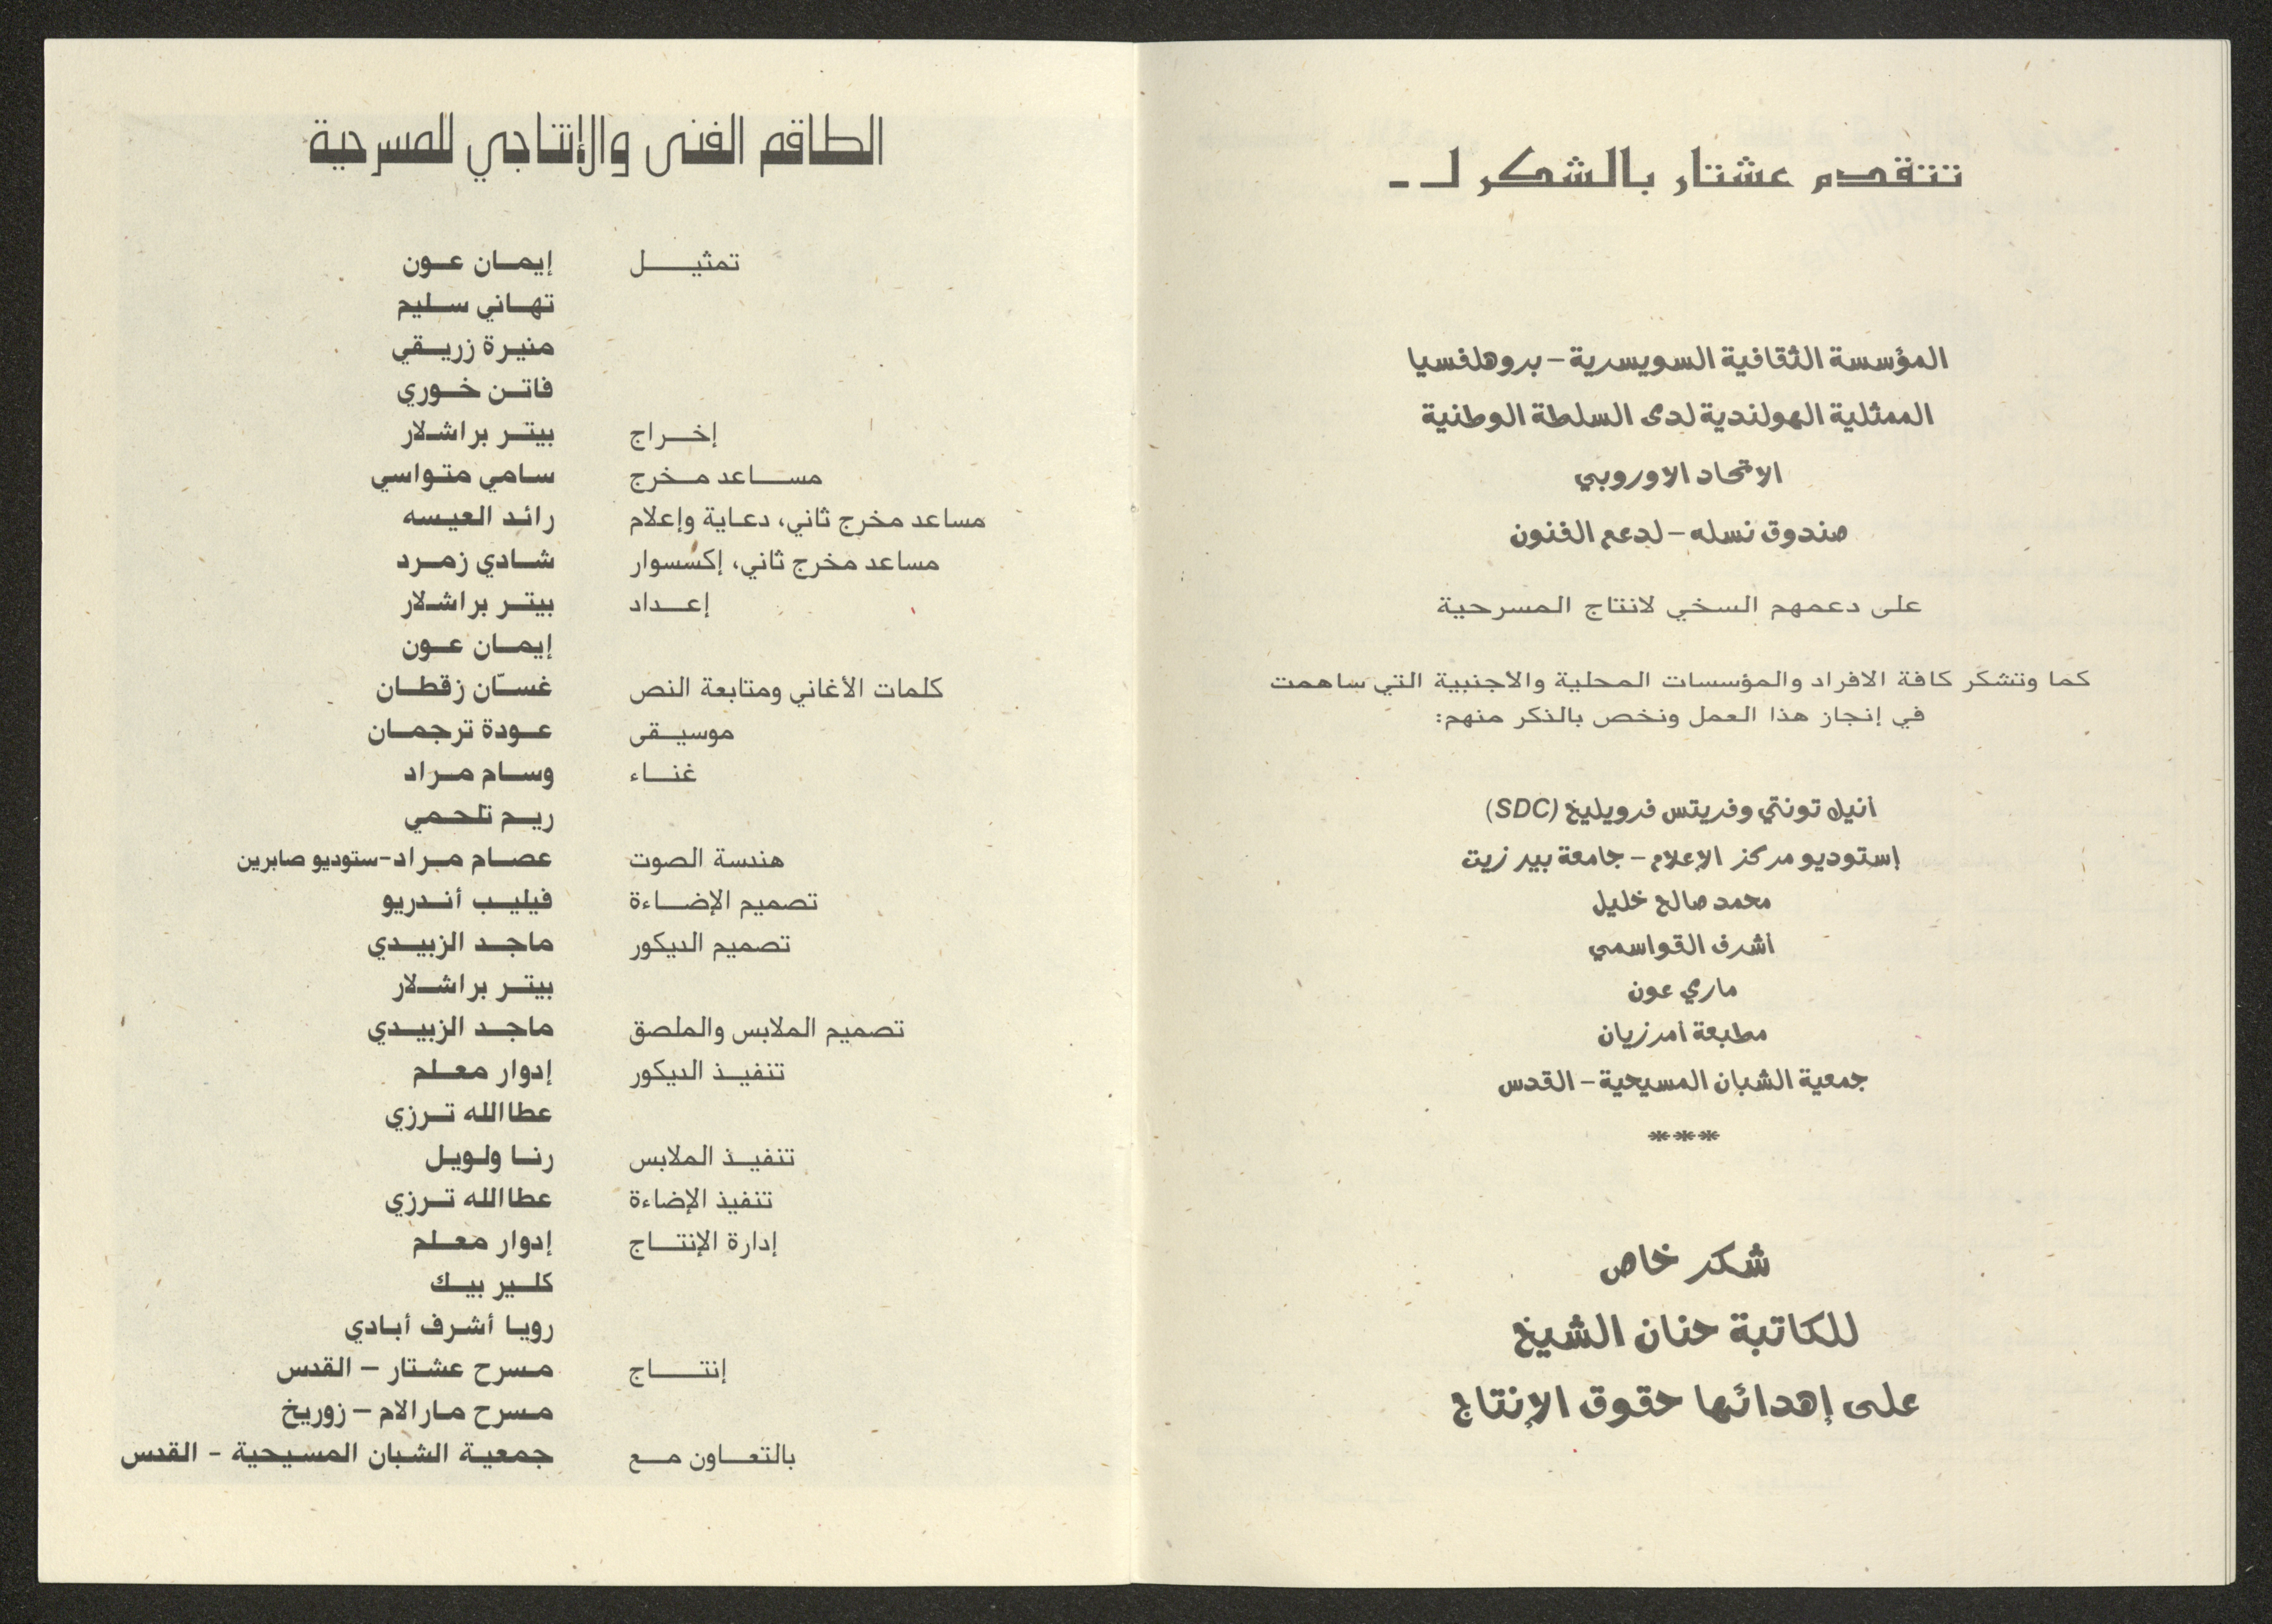 تتقدم عشتار بالشكر لـ -
المؤسسة الثقافية السويسرية - بروهلفسيا
الممثلية الهولندية لدى السلطة الوطنية
الاتحاد الاوروبي
صندوق نسله - لدعم الفنون
على دعمهم السخي لانتاج المسرحية
كما وتشكر كافة الافراد والمؤسسات المحلية والاجنبية التي ساهمت
في إنجاز هذا العمل ونخص بالذكر منهم:
أنيل تونتي وفريتس فرويليخ (SDC)
إستوديو مركز الإعلام - جامعة بير زيت
محمد صالح خليل
أشرف القواسمي
ماري عون
مطبعة أمرزيان
جمعية الشبان المسيحية - القدس
***
شكر خاص
للكاتبة حنان الشيخ
على إهدائها حقوق الإنتاج
الطاقم الفنى والإنتاجي للمسرحية
تمثيل إيمان عون
تهاني سليم
منيرة زريقي
فاتن خوري
إخراج بيتر براشلار
مساعد مخرج سامي متواسي
مساعد مخرج ثاني، دعاية وإعلام رائد العيسه
مساعد مخرج ثاني، إكسسوار شادي زمرد
إعداد بيتر براشلار
إيمان عون
كلمات الأغاني ومتابعة النص غسّان زقطان
موسيقى عودة ترجمان
غناء وسام مراد
ريم تلحمي
هندسة الصوت عصام مراد-ستوديو صابرين
تصميم الإضاءة فيليب أندريو
تصميم الديكور ماجد الزبيدي
بيتر براشلار
تصميم الملابس والملصق ماجد الزبيدي
تنفيذ الديكور إدوار معلم
عطاالله ترزي
تنفيذ الملابس رنا ولويل
تنفيذ الإضاءة عطاالله ترزي
إدارة الإنتاج إدوار معلم
كلير بيك
رويا أشرف أبادي
إنتاج مسرح عشتار - القدس
مسرح مارالام - زوريخ
بالتعاون مع جمعية الشبان المسيحية - القدس